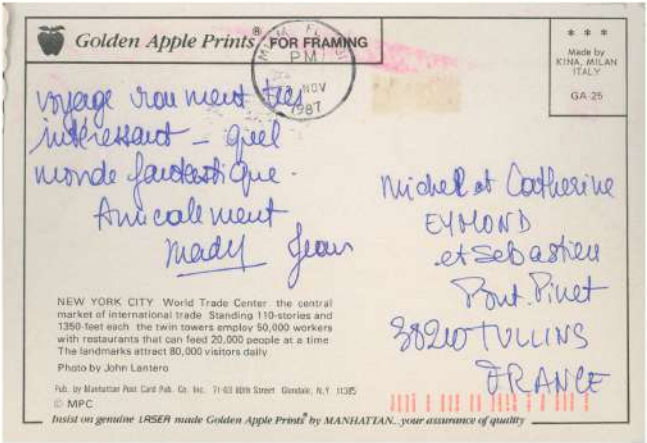 Golden Apple Prints® FOR FRAMING
* * *
Made by
KINA, MILAN
ITALY
GA-25
MIAMI FL
PM
NOV
1987
voyage vraiment très
intéressant - quel
monde fantastique.
Amicalement
Mady Jean
Michel et Catherine
EYMOND
et Sebastien
Pont. Pinet
38210 TULLINS
FRANCE
NEW YORK CITY World Trade Center the central
market of international trade Standing 110-stories and
1350-feet each the twin towers employ 50,000 workers
with restaurants that can feed 20,000 people at a time
The landmarks attract 80,000 visitors daily
Photo by John Lantero
Pub. by Manhattan Post Card Pub. Co. Inc. 71-63 80th Street Glendale, N.Y. 11385
© MPC
Insist on genuine LASER made Golden Apple Prints® by MANHATTAN...your assurance of quality